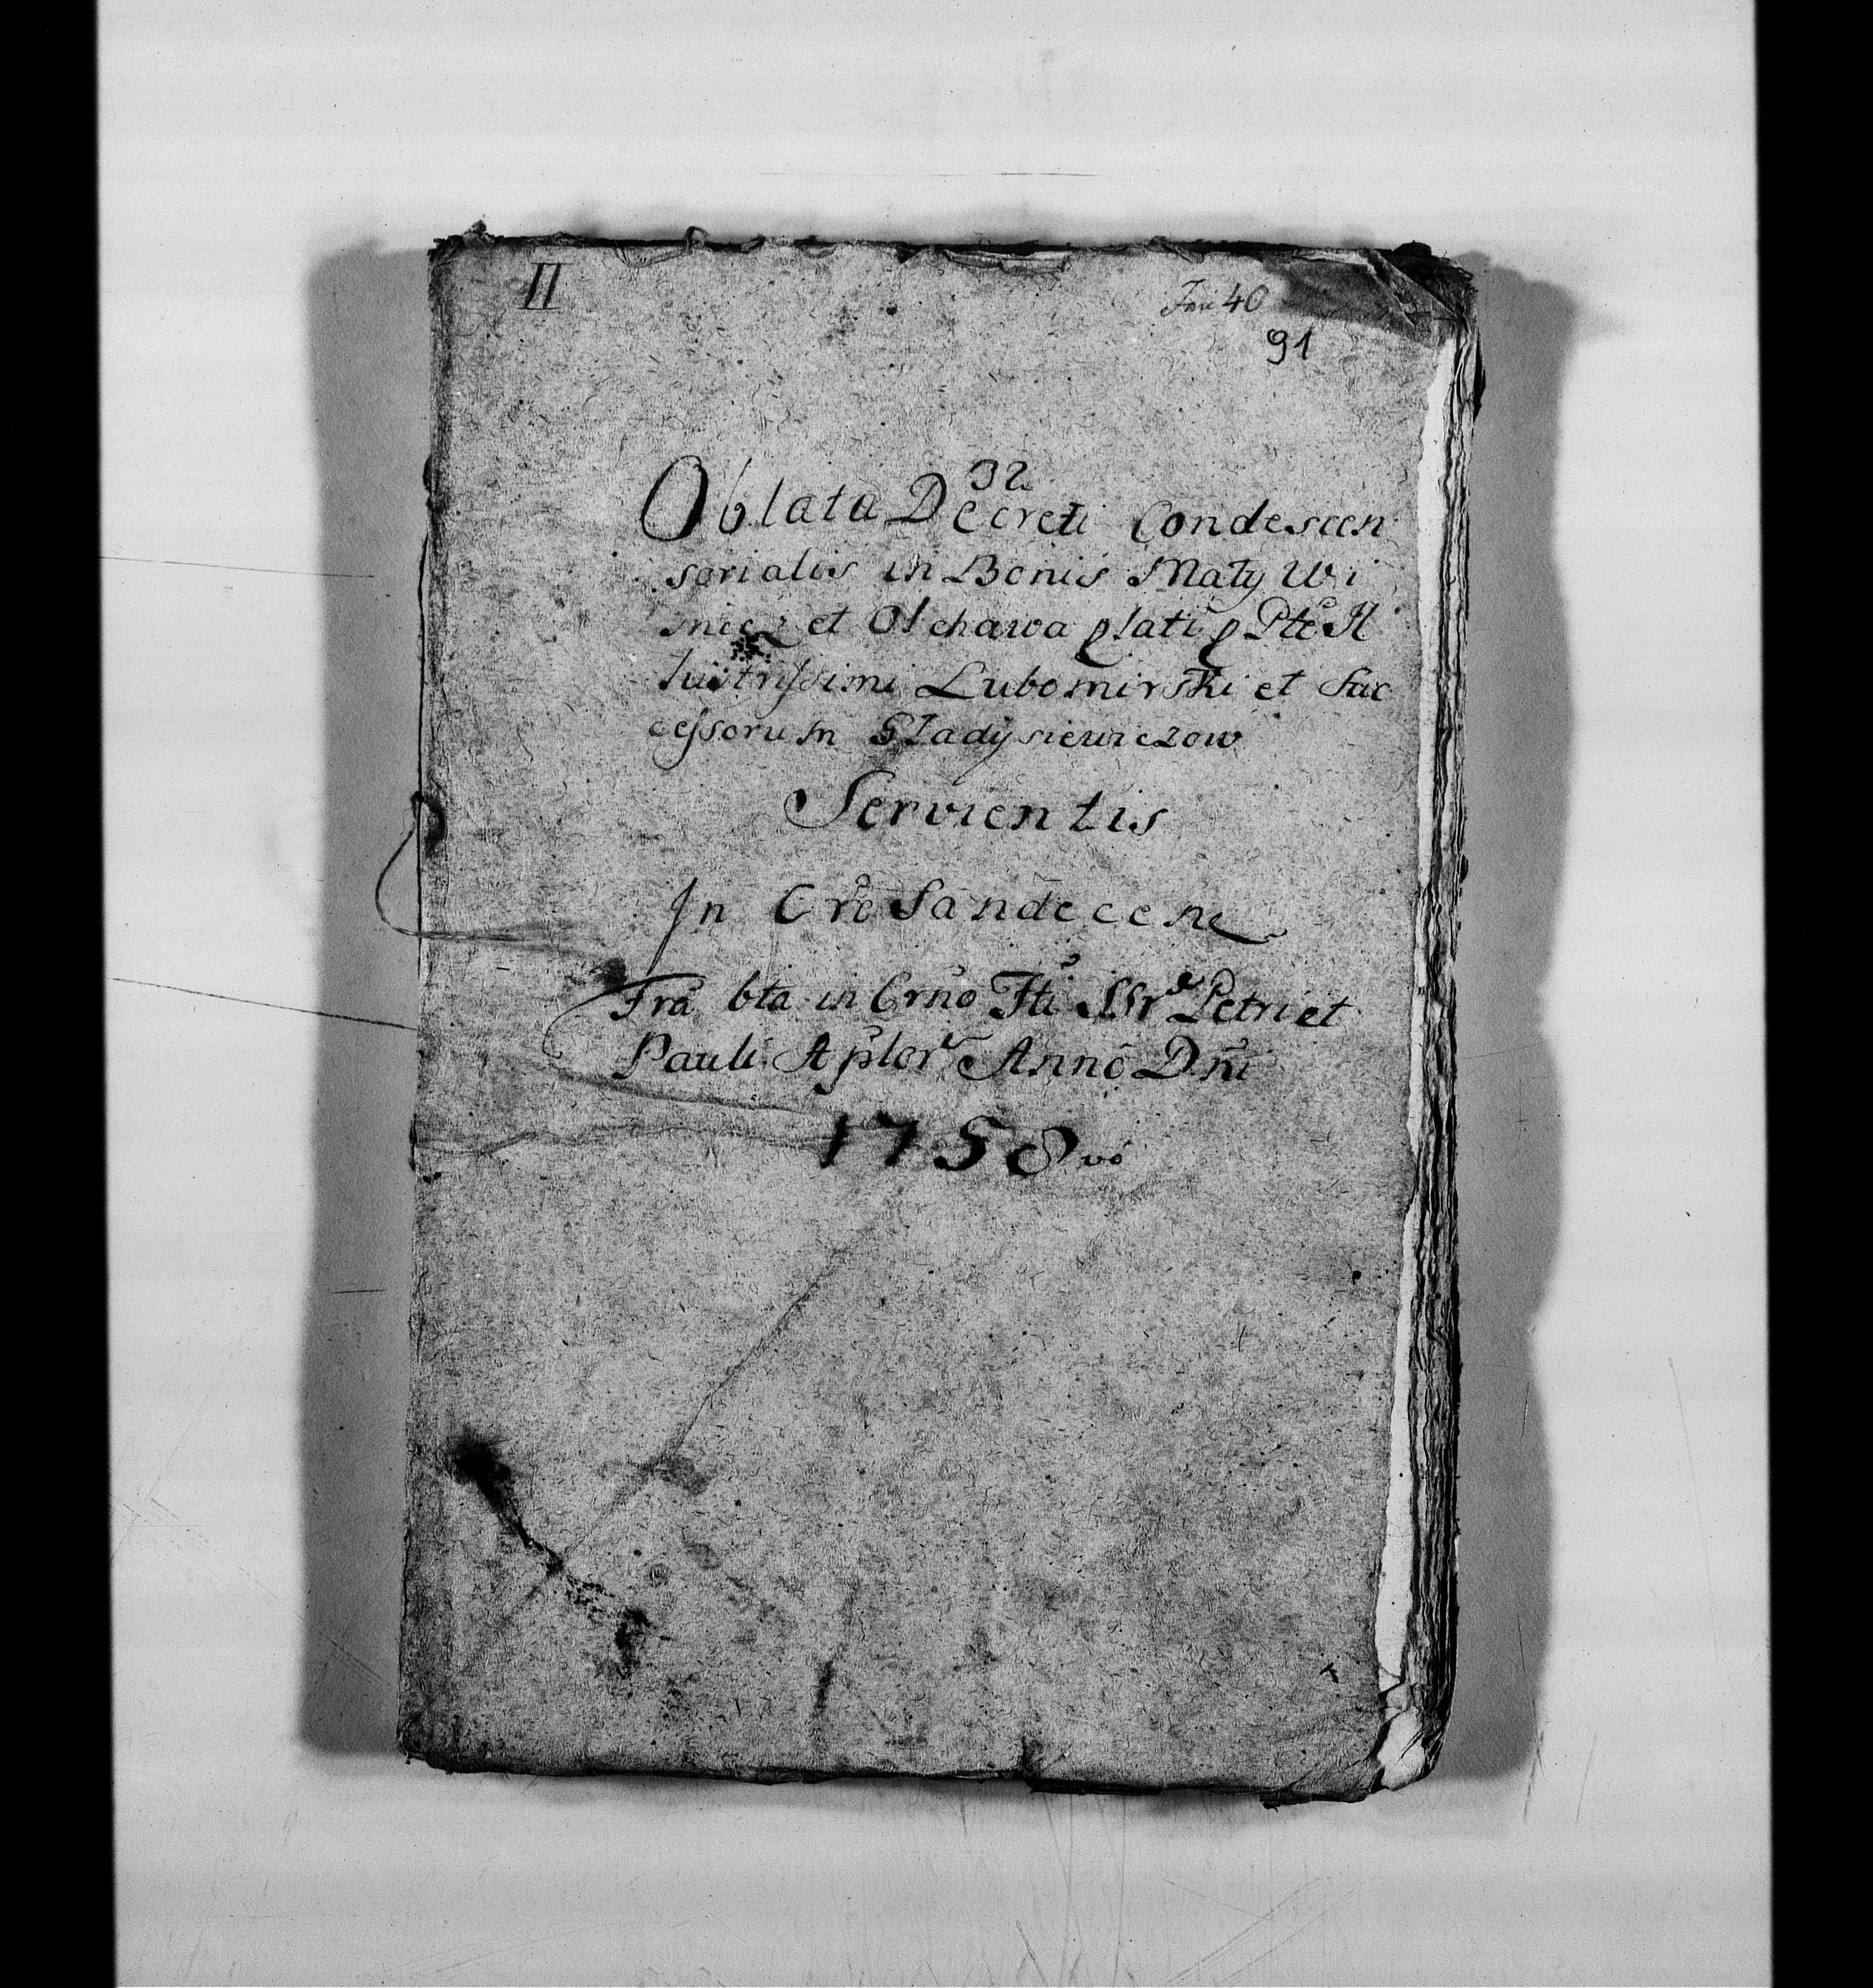 II
40
91
32
Oblata Decreti Condescen
sorialis in Bonis Maly Wi
snicz et Olchawa plati p Pte Il
lustrissimi Lubomirski et Suc
cessorum Gładysiewiczow
Servientis
In Cre Sandecen
Fra bta in Crno Fti SSr Petri et
Pauli Aplor Anno Dni
1758vo